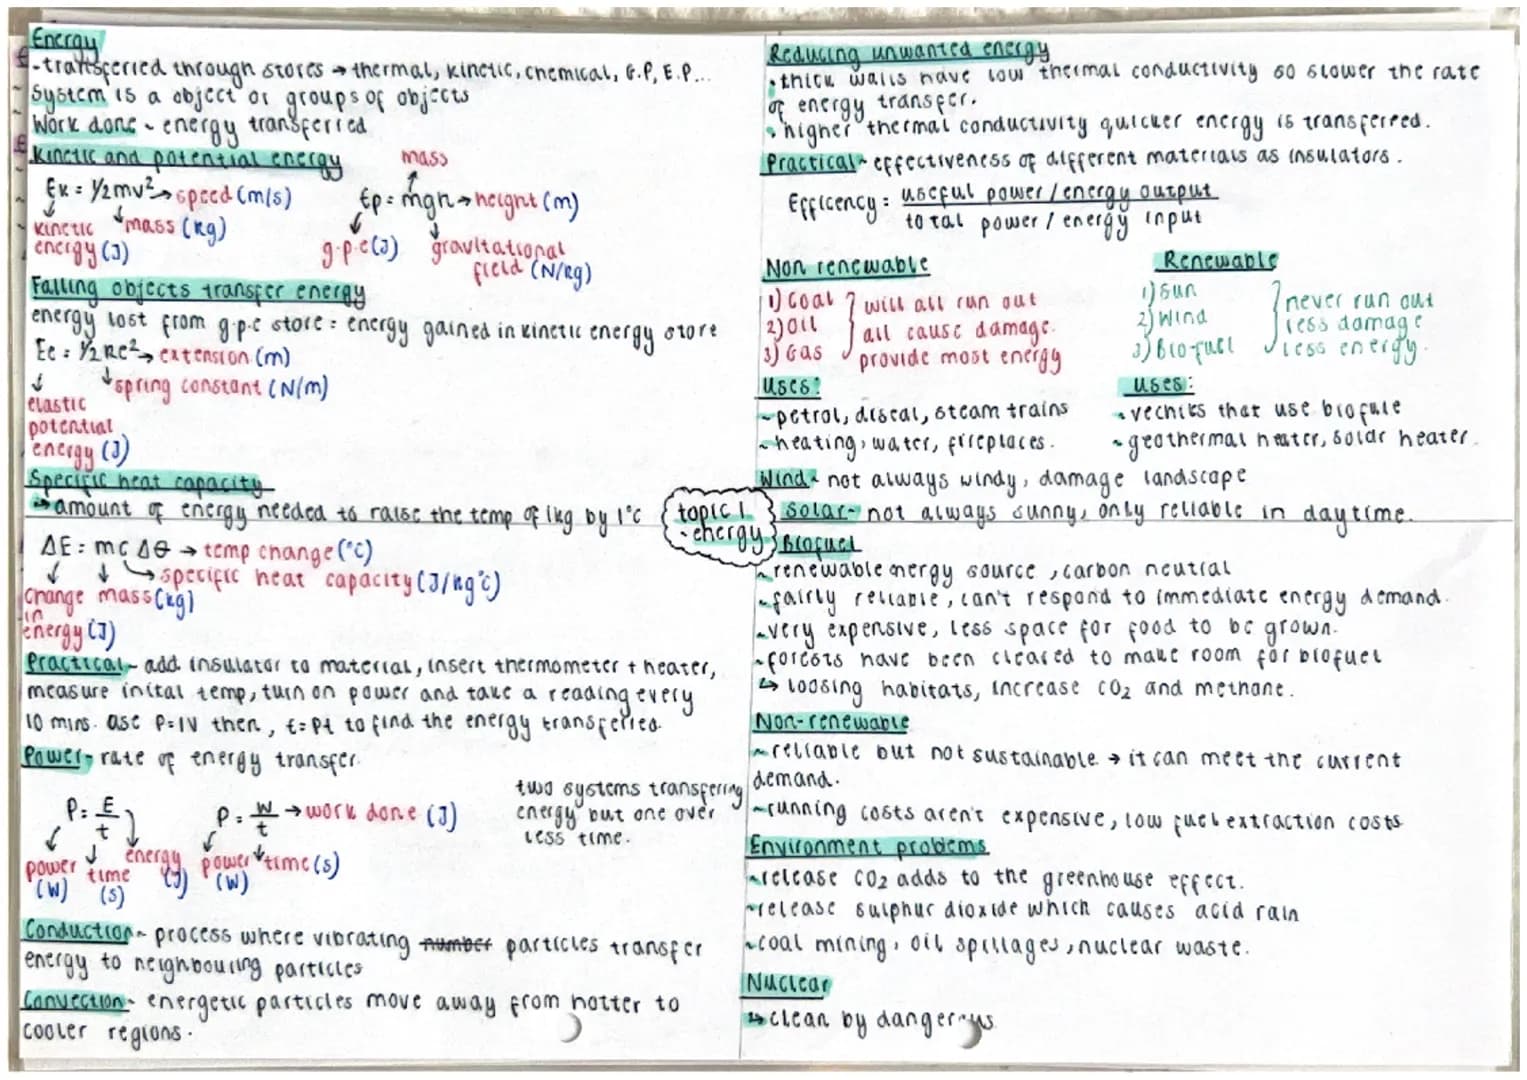 Energy
-transferred through stores → thermal, kinetic, chemical, G.P, E.P...
System is a object or groups of objects
Work done - energy transferred
Kinetic and potential energy
Ek = 1/2mv² → speed (m/s)
mass (kg)
kinetic energy (J)
mass
Ep = mgh → height (m)
g.p.e (J)
gravitational field (N/kg)
Falling objects transfer energy
energy lost from g.p.e store = energy gained in kinetic energy store
Ee = 1/2 ke² → extension (m)
spring constant (N/m)
elastic
potential
energy (J)
Specific heat capacity
→ amount of energy needed to raise the temp of 1kg by 1°c
ΔE = mc Δθ → temp change (°c)
specific heat capacity (J/kg°c)
change mass (kg)
in
energy (J)
Practical - add insulator to material, insert thermometer + heater,
measure inital temp, turn on power and take a reading every
10 mins. use P=IV then, E=Pt to find the energy transferred.
Power - rate of energy transfer.
P = E/t
power (W)
time (s)
energy (J)
P = W/t → work done (J)
power (W)
time (s)
two systems transferring
energy but one over
less time.
Conduction - process where vibrating number particles transfer
energy to neighbouring particles
Convection - energetic particles move away from hotter to
cooler regions.
topic 1
- energy
Reducing unwanted energy
• thick walls have low thermal conductivity so slower the rate
of energy transfer.
• higher thermal conductivity quicker energy is transferred.
Practical - effectiveness of different materials as insulators.
Efficency = useful power / energy output
total power / energy input
Non renewable
1) Coal
2) Oil
3) Gas
will all run out
all cause damage.
provide most energy
Renewable
1) Sun
2) Wind
3) Bio-fuel
never run out
less damage
less energy.
Uses:
~petrol, diseal, steam trains
~heating, water, fireplaces.
uses:
~vechiles that use biofule
~geothermal heater, solar heater.
Wind - not always windy, damage landscape
Solar - not always sunny, only reliable in daytime.
Biofuel
~renewable energy source, carbon neutral
~fairly reliable, can't respond to immediate energy demand.
~very expensive, less space for food to be grown.
~forests have been cleared to make room for biofuel
↳ loosing habitats, increase CO2 and methane.
Non-renewable
~reliable but not sustainable → it can meet the current
demand.
~running costs aren't expensive, low fuel extraction costs
Environment problems
~release CO2 adds to the greenhouse effect.
~release sulphur dioxide which causes acid rain
~coal mining, oil spillages, nuclear waste.
Nuclear
↳ clean by dangerous